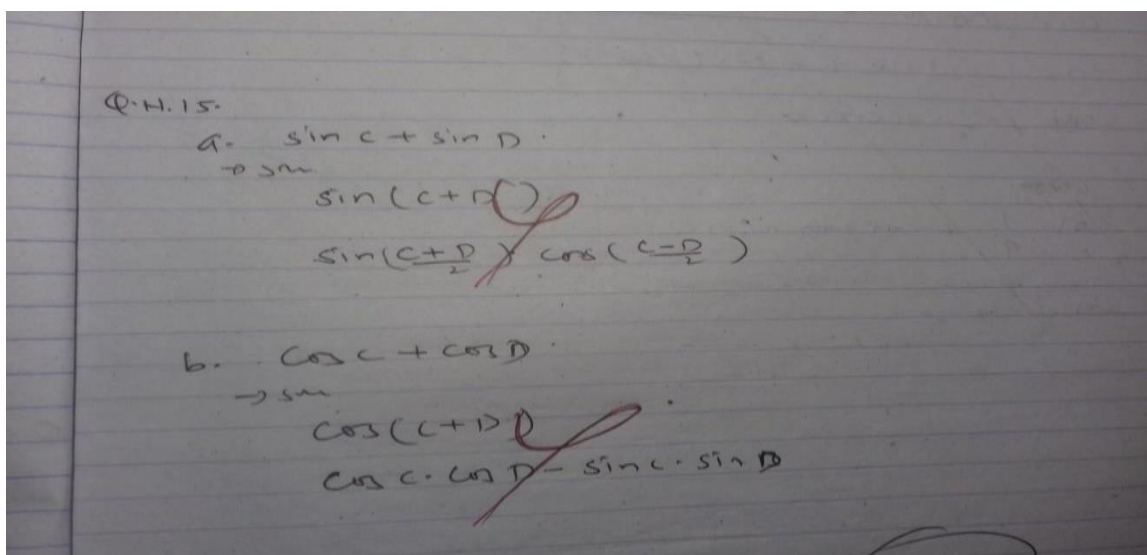 Q.N.15.
a. sin c + sin D.
→ sm
sin(c+D)
sin(c+D/2) cos(c-D/2)
b. cos c + cos D.
→ sm
cos(c+D)
cos c. cos D - sin c. sin D